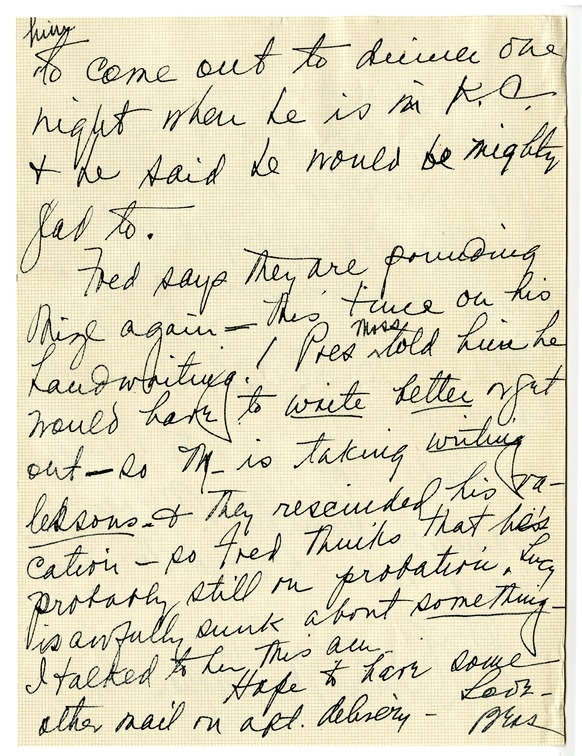 him
to come out to dinner one
night when he is in K.C.
& he said he would be mighty
glad to.
Fred says they are pounding
Mize again — this time on his
handwriting! Pres Moss told him he
would have to write better or get
out — so M— is taking writing
lessons — & they rescinded his va-
cation — so Fred thinks that he's
probably still on probation. Lucy
is awfully sunk about something —
I talked to her this a.m.
Hope to have some
other mail on apt. delivery — Love —
Bess